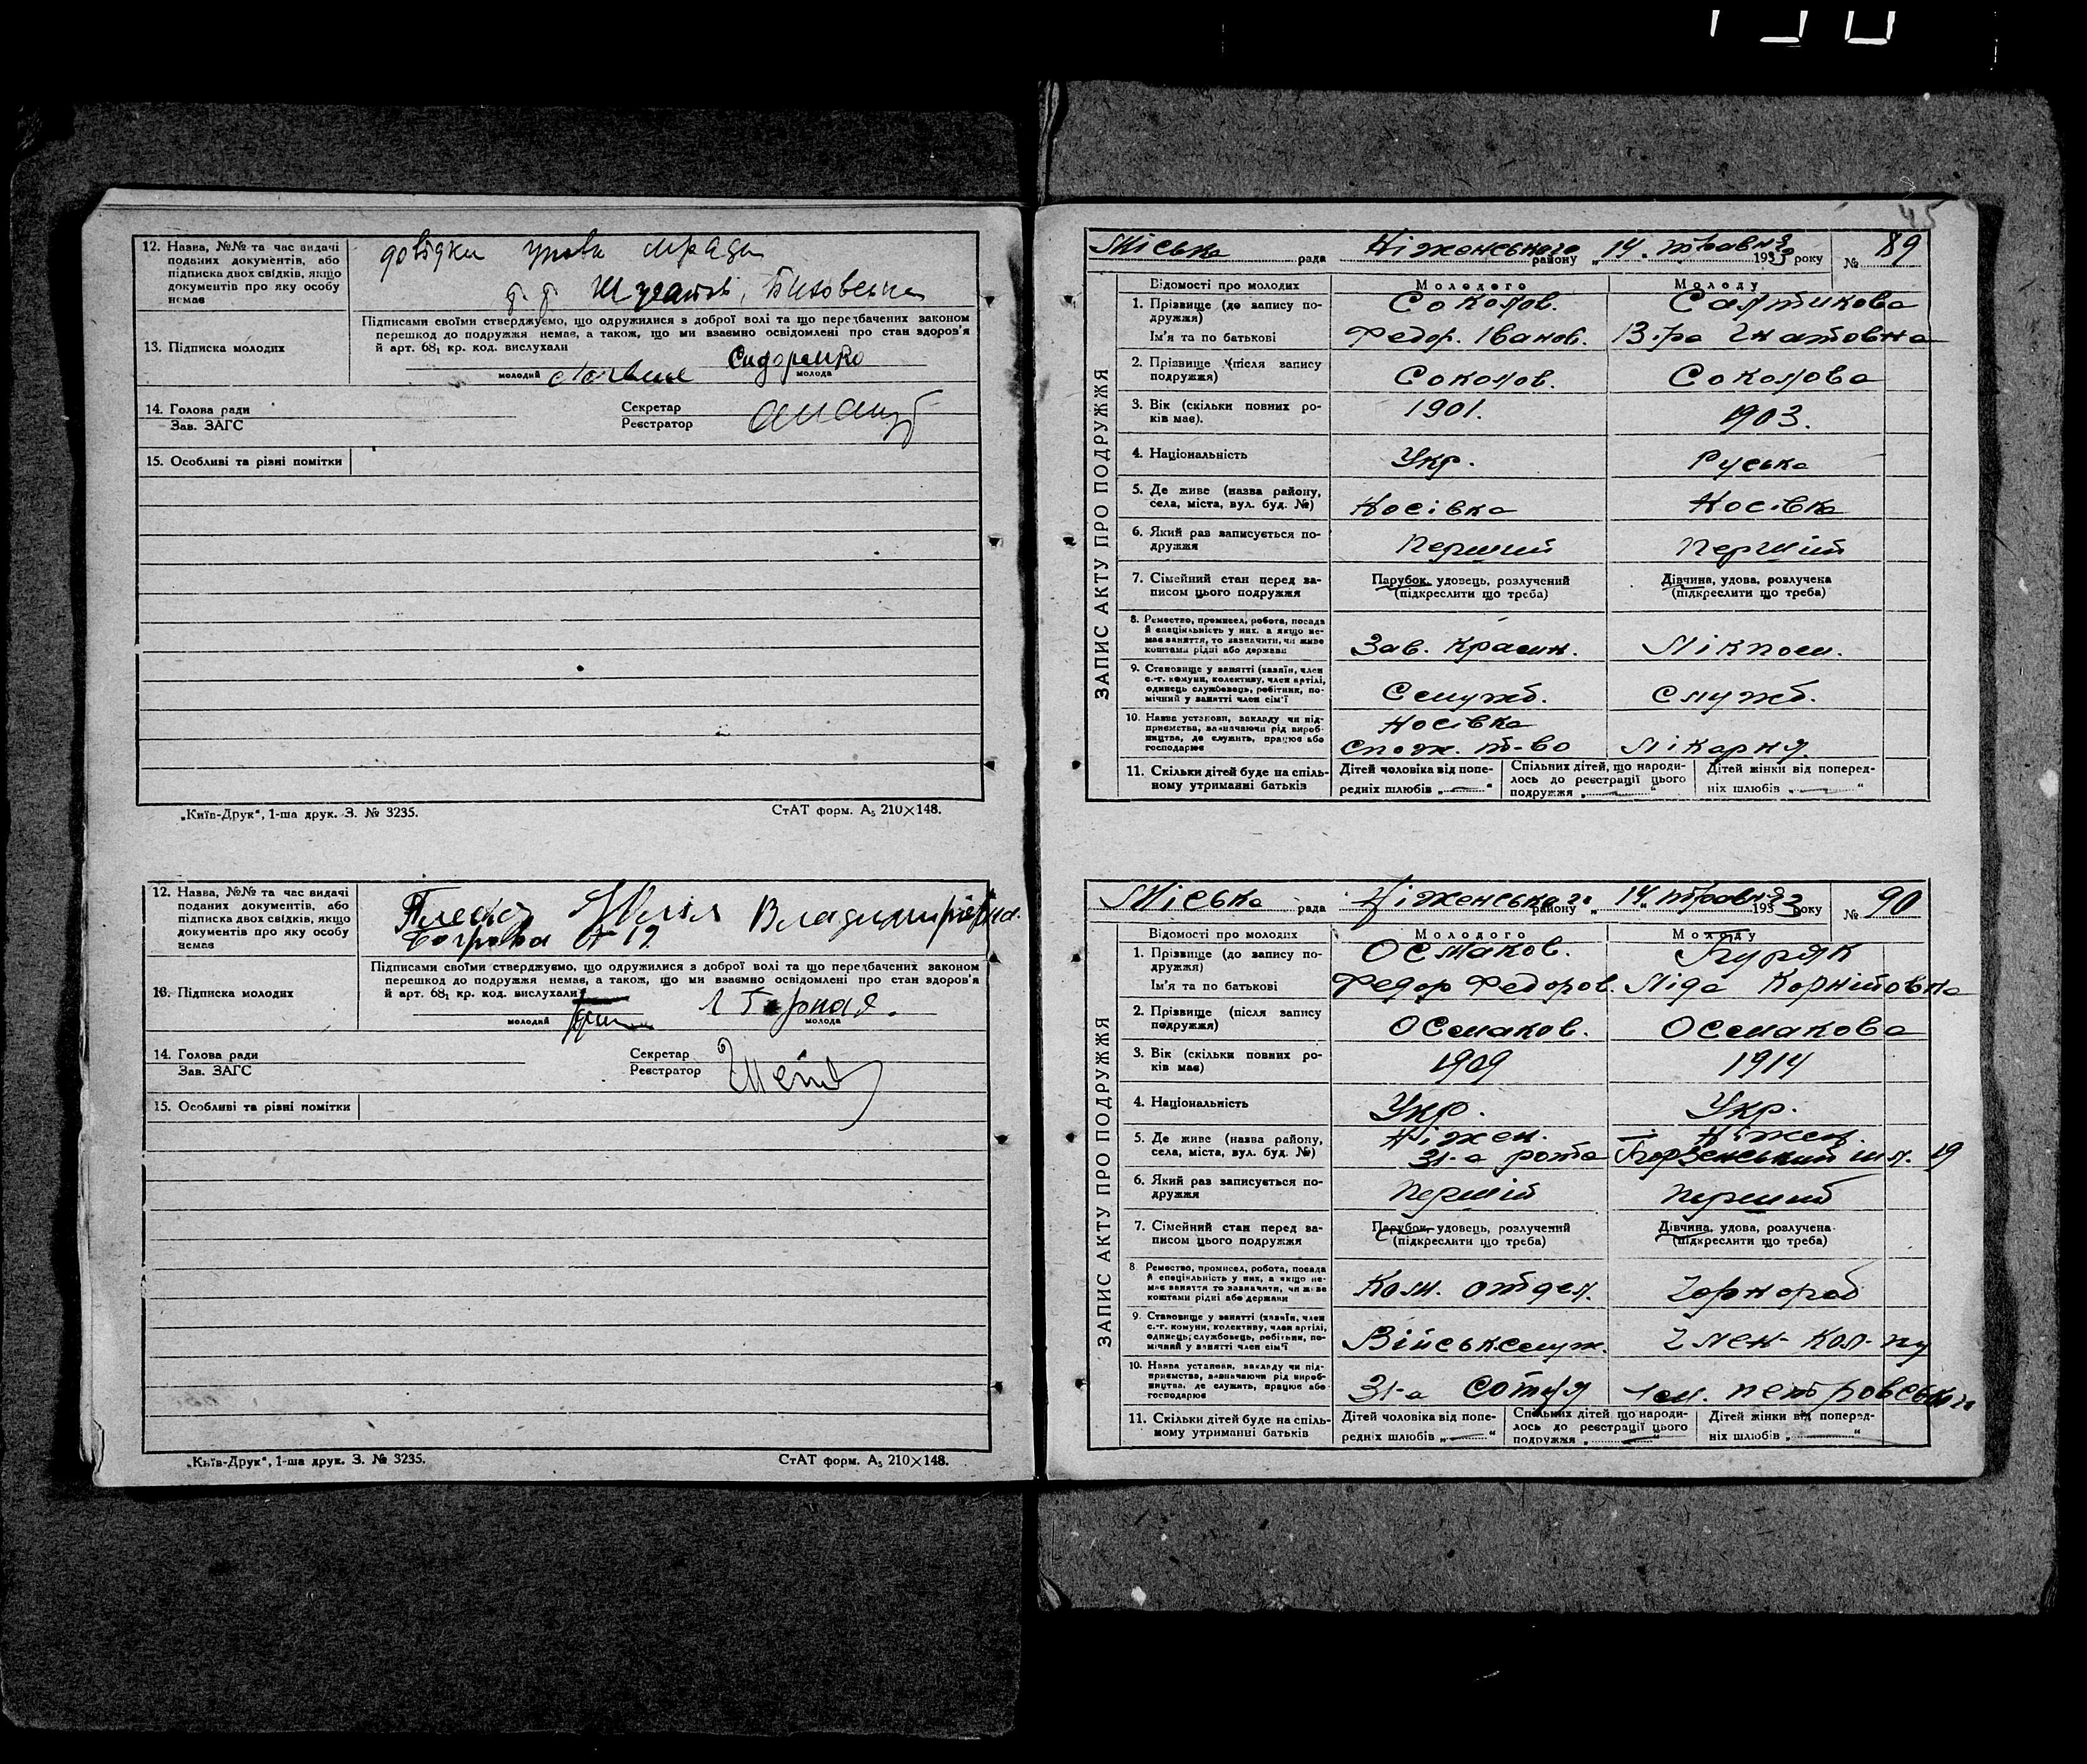 45
12. Назва, №№ та час видачі
поданих документів, або
підписка двох свідків, якщо
документів про яку особу
немає
довідки
Підписами своїми стверджуємо, що одружилися з доброї волі та що передбачених законом
перешкод до подружжя немає, а також, що ми взаємно освідомлені про стан здоров'я
й арт. 68₁ кр. код. вислухали
13. Підписка молодих
Сидоренко
молодий молода
14. Голова ради Секретар
Зав. ЗАГС Реєстратор
15. Особливі та різні помітки
„Київ-Друк“, 1-ша друк. З. № 3235. СтАТ форм. А₅ 210×148.
12. Назва, №№ та час видачі
поданих документів, або
підписка двох свідків, якщо
документів про яку особу
немає
Підписами своїми стверджуємо, що одружилися з доброї волі та що передбачених законом
перешкод до подружжя немає, а також, що ми взаємно освідомлені про стан здоров'я
й арт. 68₁ кр. код. вислухали
13. Підписка молодих
молодий молода
14. Голова ради Секретар
Зав. ЗАГС Реєстратор
15. Особливі та різні помітки
„Київ-Друк“, 1-ша друк. З. № 3235. СтАТ форм. А₅ 210×148.
ЗАПИС АКТУ ПРО ПОДРУЖЖЯ
Міська рада Ніженського району „14“ травня 1933 року № 89
Відомості про молодих Молодого Молоду
1. Прізвище (до запису подружжя) Соколов. Салтикова
Ім'я та по батькові Федор. Іванов. Ігнатовна
2. Прізвище (після запису подружжя) Соколов. Соколова
3. Вік (скільки повних років має). 1901. 1903.
4. Національність Укр. Руська
5. Де живе (назва району, села, міста, вул. буд. №) Носівка Носівка
6. Який раз записується подружжя Перший Перший
7. Сімейний стан перед записом цього подружжя Парубок, удовець, розлучений (підкреслити що треба) Дівчина, удова, розлучена (підкреслити що треба)
8. Ремество, промисел, робота, посада й спеціяльність у них, а якщо немає заняття, то зазначити, чи живе коштами рідні або держави Зав. Крамн. Лікпом.
9. Становище у занятті (хазяїн, член с.-г. комуни, колективу, член артілі, одинець службовець, робітник, помічний у занятті член сім'ї Служб. Служб.
10. Назва установи, закладу чи підприємства, зазначаючи рід виробництва, де служить, працює або господарює Носівка Спож. т-во Лікарня.
11. Скільки дітей буде на спільному утриманні батьків Дітей чоловіка від попередніх шлюбів „—“ Спільних дітей, що народилось до реєстрації цього подружжя „—“ Дітей жінки від попередніх шлюбів „—“
ЗАПИС АКТУ ПРО ПОДРУЖЖЯ
Міська рада Ніженського району „14“ травня 1933 року № 90
Відомості про молодих Молодого Молоду
1. Прізвище (до запису подружжя) Осмаков. Буряк
Ім'я та по батькові Федор Федоров. Ліда Корніїовна
2. Прізвище (після запису подружжя) Осмаков. Осмакова
3. Вік (скільки повних років має) 1909 1914
4. Національність Укр. Укр.
5. Де живе (назва району, села, міста, вул. буд. №) Ніжен. 31-а рота Ніжен. Борзенський шл. 19
6. Який раз записується подружжя Перший Перший
7. Сімейний стан перед записом цього подружжя Парубок, удовець, розлучений (підкреслити що треба) Дівчина, удова, розлучена (підкреслити що треба)
8. Ремество, промисел, робота, посада й спеціяльність у них, а якщо немає заняття то зазначити, чи живе коштами рідні або держави Ком. отдел. Чорнороб
9. Становище у занятті (хазяїн, член с.-г. комуни, колективу, член артілі, одинець, службовець, робітник, помічний у занятті член сім'ї Військслуж. Член кол-пу
10. Назва установи, закладу чи підприємства, зазначаючи рід виробництва, де служить, працює або господарює 31-а Сотня Ім. Петровського
11. Скільки дітей буде на спільному утриманні батьків Дітей чоловіка від попередніх шлюбів „—“ Спільних дітей, що народилось до реєстрації цього подружжя „—“ Дітей жінки від попередніх шлюбів „—“